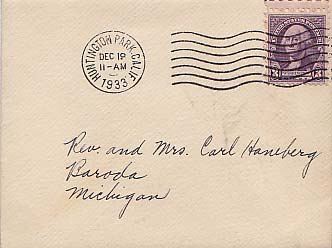 HUNTINGTON PARK, CALIF.
DEC 19
11-AM
1933
3 3
Rev. and Mrs. Carl Haneberg
Baroda
Michigan